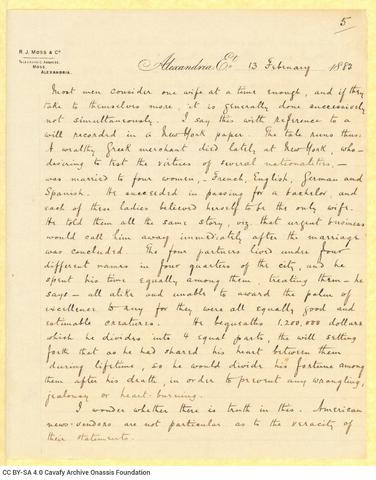 5
R. J. MOSS & Co
TELEGRAPHIC ADDRESS,
MOSS.
ALEXANDRIA.
Alexandria Et. 13 February 1882
Most men consider one wife at a time enough, and if they
take to themselves more, it is generally done successively
not simultaneously. I say this with reference to a
will recorded in a New York paper. The tale runs thus:
A wealthy Greek merchant died lately at New York, who -
desiring to test the virtues of several nationalities, -
was married to four women, - French, English, German and
Spanish. He succeeded in passing for a bachelor, and
each of these ladies believed herself to be the only wife.
He told them all the same story, viz that urgent business
would call him away immediately after the marriage
was concluded. The four partners lived under four
different names in four quarters of the city, and he
spent his time equally among them, treating them - he
says - all alike and unable to award the palm of
excellence to any for they were all equally good and
estimable creatures. He bequeaths 1.200,000 dollars
which he divides into 4 equal parts, the will setting
forth that as he had shared his heart between them
during lifetime, so he would divide his fortune among
them after his death, in order to prevent any wrangling,
jealousy or heart-burning.
I wonder whether there is truth in this. American
news-vendors are not particular as to the veracity of
their statements.
CC BY-SA 4.0 Cavafy Archive Onassis Foundation